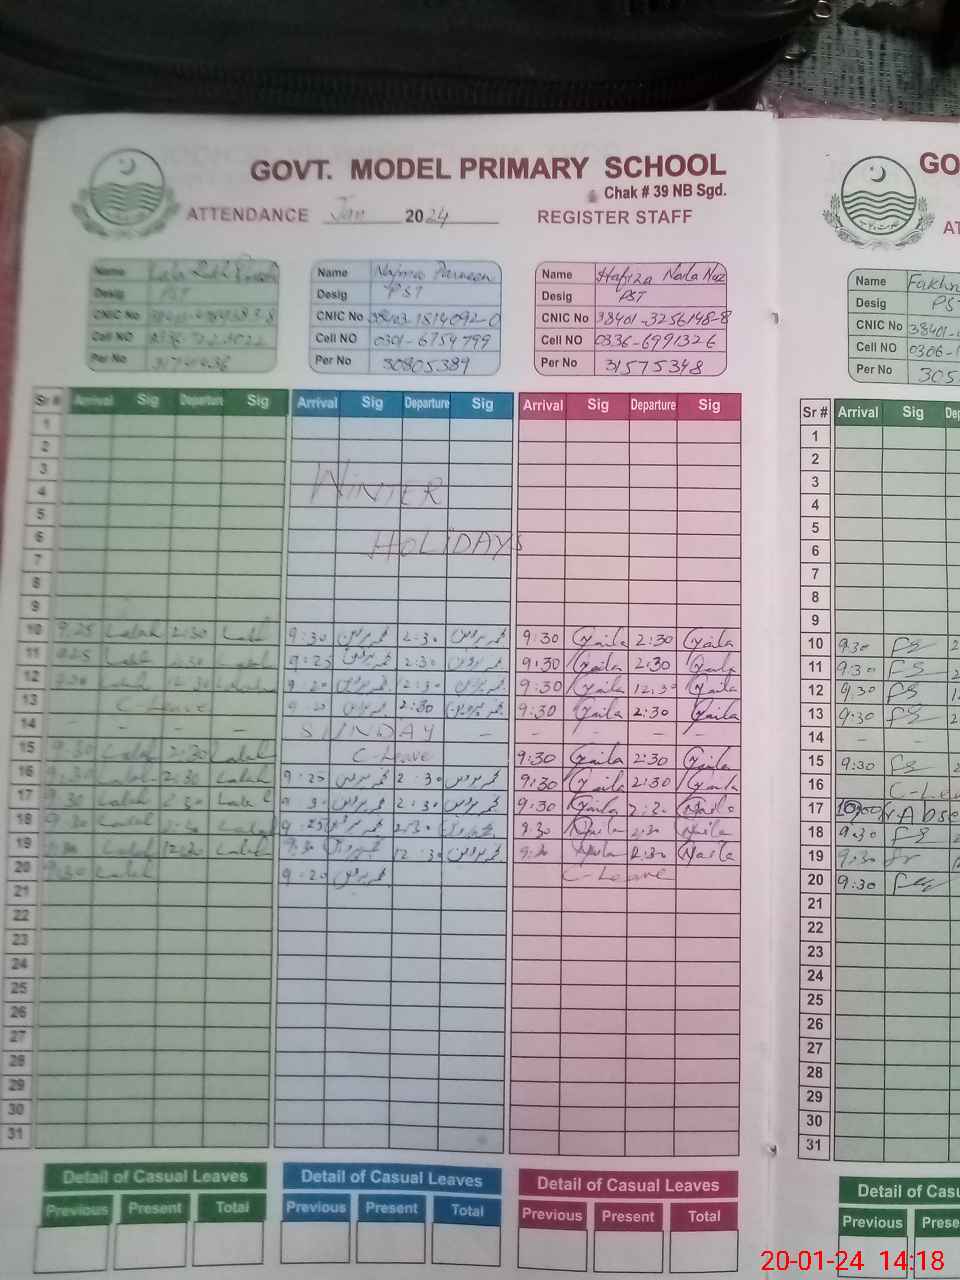 GOVT. MODEL PRIMARY SCHOOL
Chak # 39 NB Sgd.
ATTENDANCE Jan 2024 REGISTER STAFF
GO
AT
Name
Desig PST
CNIC No
Cell NO
Per No
Name Najma Parveen
Desig PST
CNIC No 38403-1814092-0
Cell NO 0301-6754799
Per No 30805389
Name Hafiza Naila Naz
Desig PST
CNIC No 38401-3256148-8
Cell NO 0336-6991326
Per No 31575348
Name Fakhr
Desig PST
CNIC No 38401-
Cell NO 0306-1
Per No 305
Sr # Arrival Sig Departure Sig Arrival Sig Departure Sig Arrival Sig Departure Sig Sr # Arrival Sig Dep
1 1
2 2
3 3
4 WINTER 4
5 5
6 HOLIDAYS 6
7 7
8 8
9 9
10 9:25 Lalah 2:30 Lalah 9:30 2:30 9:30 Naila 2:30 Naila 10 9:30 2
11 9:25 Lalah 2:30 Lalah 9:25 2:30 9:30 Naila 2:30 Naila 11 9:30
12 9:30 Lalah 12:30 Lalah 9:20 12:30 9:30 Naila 12:30 Naila 12 9:30
13 C-Leave 9:20 2:30 9:30 Naila 2:30 Naila 13 9:30
14 - - - - SUNDAY - - - - - 14 - -
15 9:30 Lalah 2:30 Lalah C-Leave 9:30 Naila 2:30 Naila 15 9:30
16 9:30 Lalah 2:30 Lalah 9:20 2:30 9:30 Naila 2:30 Naila 16 C-Lea
17 9:30 Lalah 2:30 Lalah 9:30 2:30 9:30 Naila 2:30 Naila 17 Abse
18 9:30 Lalah 2:30 Lalah 9:25 2:30 9:30 Naila 2:30 Naila 18 9:30
19 9:30 Lalah 12:30 Lalah 9:30 12:30 9:30 Naila 12:30 Naila 19 9:30
20 9:30 Lalah 9:20 C-Leave 20 9:30
21 21
22 22
23 23
24 24
25 25
26 26
27 27
28 28
29 29
30 30
31 31
Detail of Casual Leaves Detail of Casual Leaves Detail of Casual Leaves Detail of Casu
Previous Present Total Previous Present Total Previous Present Total Previous Prese
20-01-24 14:18